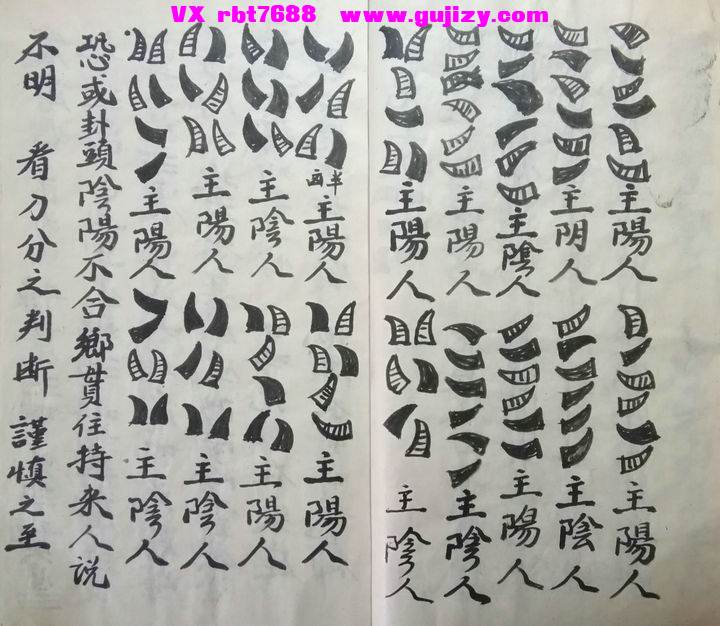 VX rbt7688 www.gujizy.com
主陽人
主陽人
主阴人
主陰人
主陰人
主陽人
主陽人
主陰人
主陽人
主陰人
半畝主陽人
主陽人
主陰人
主陽人
主陽人
主陰人
主陽人
主陰人
恐或卦頭陰陽不合鄉貫住持來人説
不明 看刀分之判断 謹慎之至